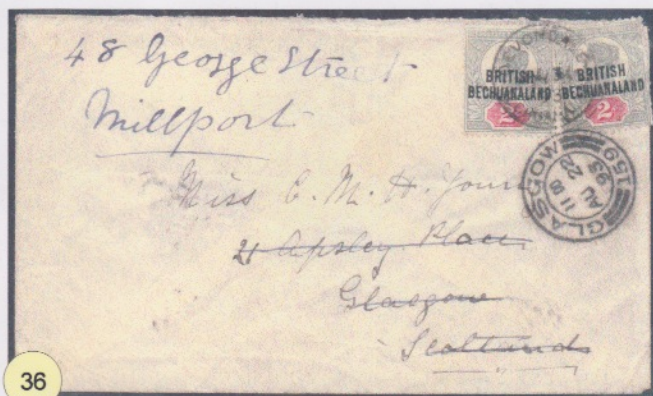 48 George Street
Millport
BRITISH
BECHUANALAND
2
BRITISH
BECHUANALAND
2
GLASGOW
159
AU 22
93
Miss C. M. H. Young
21 Apsley Place
Glasgow
Scotland
36